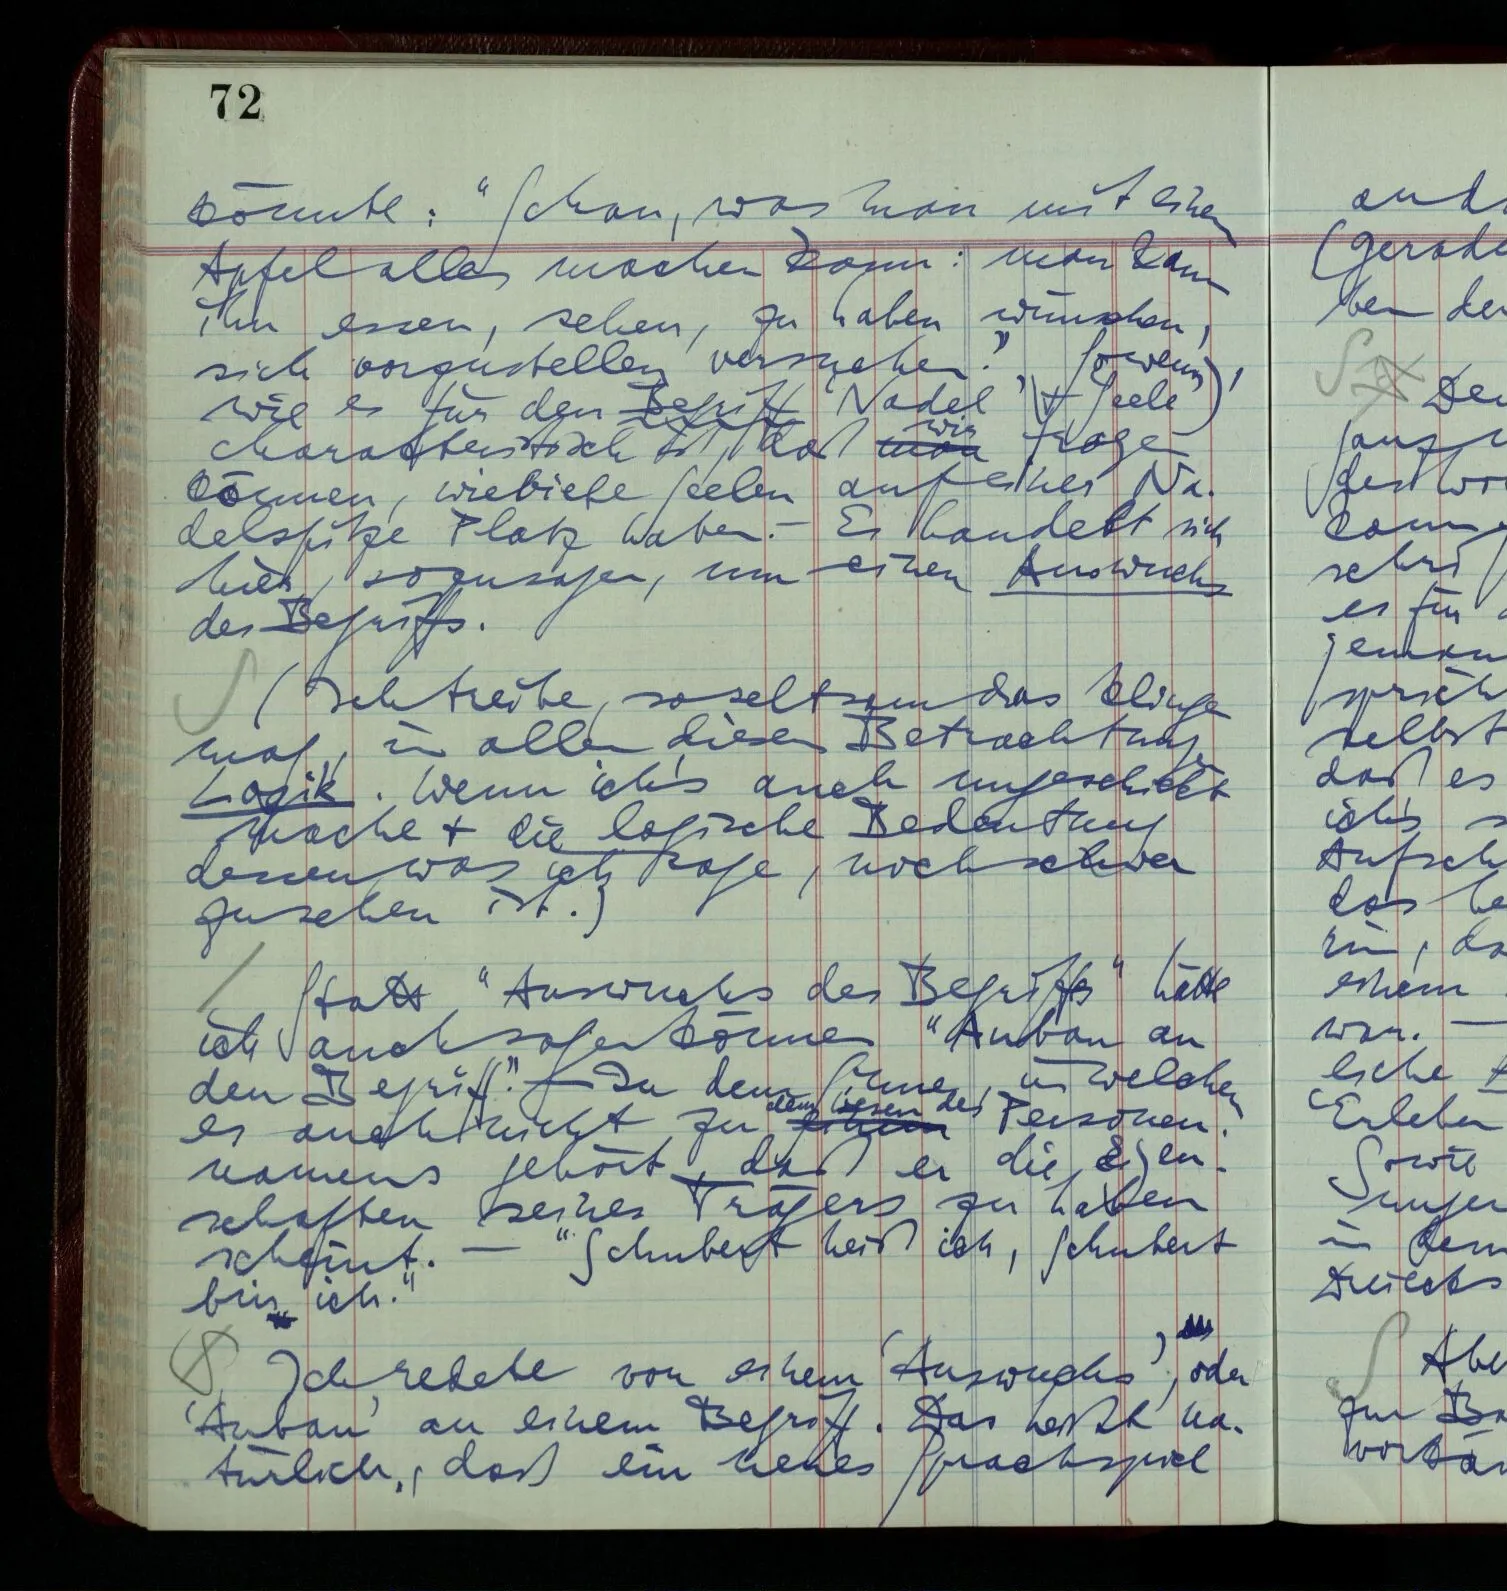 72
könnte: "Schau, was man mit einem
Apfel alles machen kann: man kann
ihn essen, sehen, zu haben wünschen,
sich vorzustellen versuchen." Sowenig,
wie es für den Begriff 'Nadel' + 'Seele')
charakteristisch ist, daß man wir fragen
können, wieviele Seelen auf einer Na-
delspitze Platz haben. – Es handelt sich
hier, sozusagen, um einen Auswuchs
des Begriffs.
(Ich treibe, so seltsam das klingen
mag, in allen diesen Betrachtungen
Logik. Wenn ich's auch ungeschickt
mache + die logische Bedeutung
dessen, was ich sage, noch schwer
zu sehen ist.)
Statt "Auswuchs des Begriffs" hätte
ich auch sagen können "Anbau an
den Begriff". – In dem Sinne, in welchem
es auch nicht zu einem dem Wesen des Personen-
namens gehört, daß er die Eigen-
schaften seines Trägers zu haben
scheint. — "Schubert heiß ich, Schubert
bin ich."
Ich redete von einem 'Auswuchs', oder
'Anbau' an einem Begriff. Das heißt na-
türlich, daß ein neues Sprachspiel
(Gerade
ben der
es für
selbst
daß es
ich's
einem
war. —
Erleben
Sowie
in dem
Aber
zur